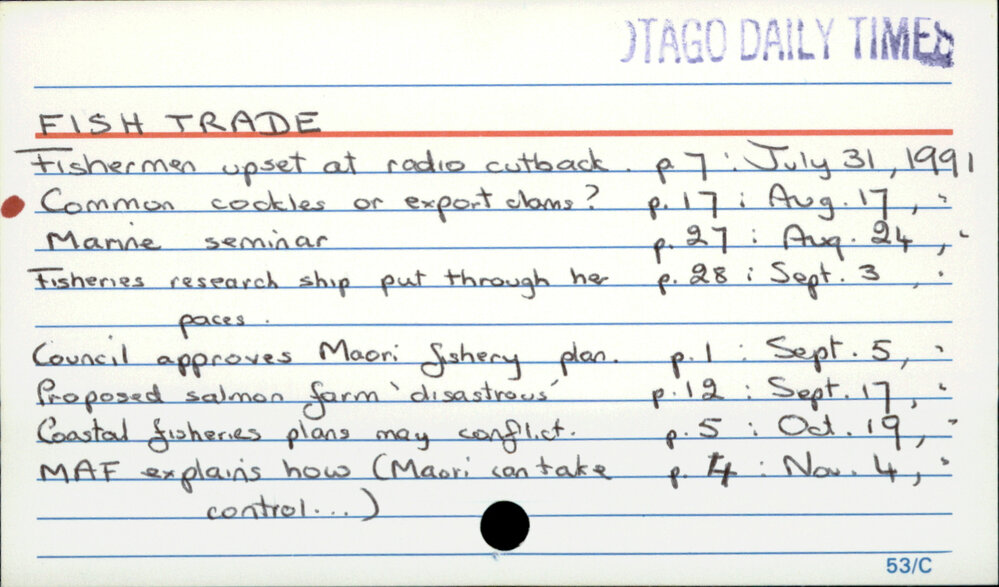 OTAGO DAILY TIMES
FISH TRADE
Fishermen upset at radio cutback. p 7 : July 31, 1991
Common cockles or export clams? p. 17 : Aug. 17, "
Marine seminar p. 27 : Aug. 24, "
Fisheries research ship put through her p. 28 : Sept. 3, "
paces.
Council approves Maori fishery plan. p. 1 : Sept. 5, "
Proposed salmon farm 'disastrous' p. 12 : Sept. 17, "
Coastal fisheries plans may conflict. p. 5 : Oct. 19, "
MAF explains how (Maori can take p. 4 : Nov. 4, "
control...)
53/C